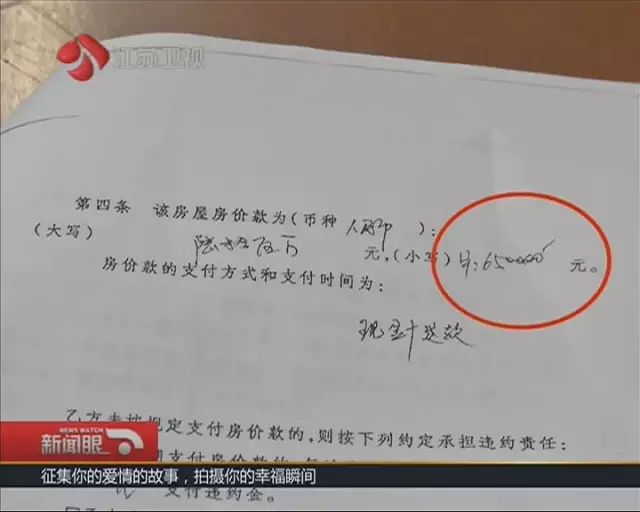 江苏卫视
第四条 该房屋房价款为(币种 人民币 ):
(大写) 陆拾伍万 元,(小写) ¥:650000 元。
房价款的支付方式和支付时间为:
现金+贷款
乙方未按规定支付房价款的,则按下列约定承担违约责任:
支付房价款的,
支付违约金。
NEWS WATCH
新闻眼
征集你的爱情的故事,拍摄你的幸福瞬间